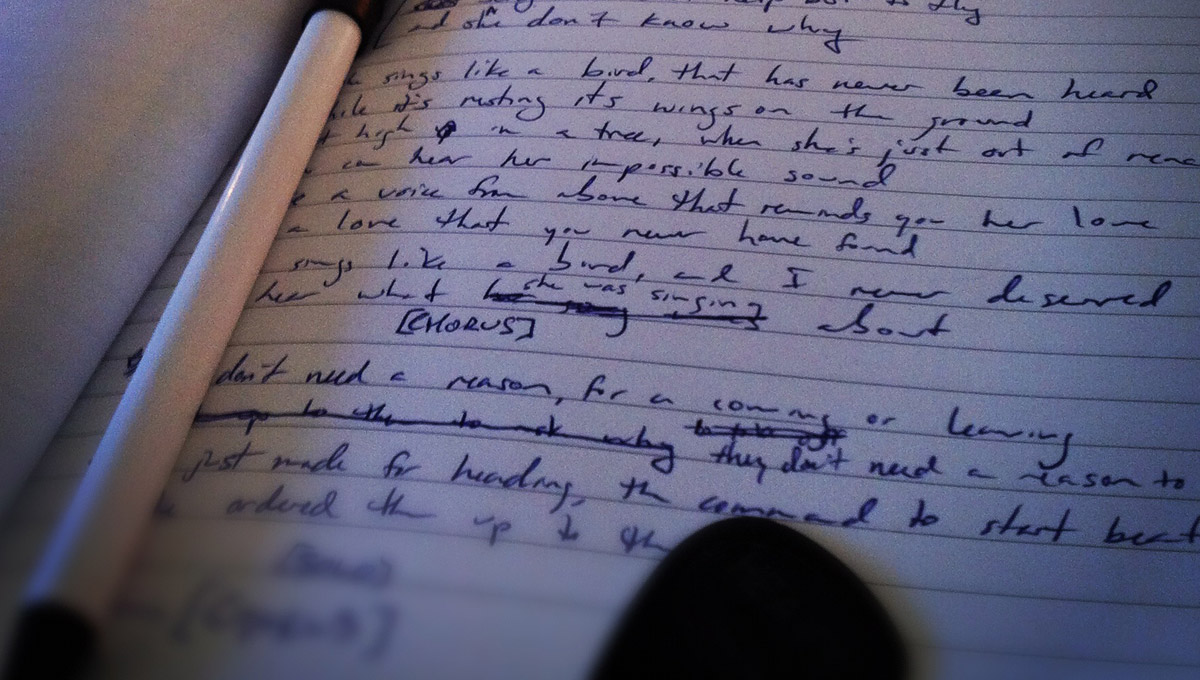 to fly
and she don't know why
sings like a bird, that has never been heard
it's resting its wings on the ground
high in a tree, when she's just out of
can hear her impossible sound
a voice from above that reminds you her love
a love that you never have found
sings like a bird, and I never deserved
hear what she was singing about
[CHORUS]
don't need a reason, for a coming or leaving
they don't need a reason to
just made for heading, the command to start
ordered them up to the
[CHORUS]